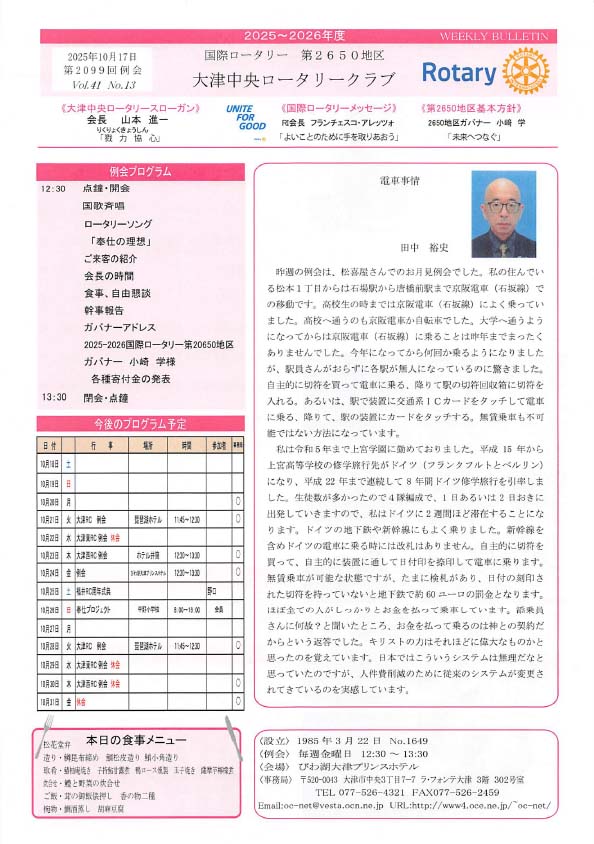 2025～2026年度
WEEKLY BULLETIN
2025年10月17日
第2099回例会
Vol.41 No.13
国際ロータリー 第2650地区
大津中央ロータリークラブ
Rotary
《大津中央ロータリースローガン》
会長 山本 進一
りくりょくきょうしん
「戮力協心」
UNITE
FOR
GOOD
《国際ロータリーメッセージ》
RI会長 フランチェスコ・アレッツォ
「よいことのために手を取りあおう」
《第2650地区基本方針》
2650地区ガバナー 小﨑 学
「未来へつなぐ」
例会プログラム
12:30 点鐘・開会
国歌斉唱
ロータリーソング
「奉仕の理想」
ご来客の紹介
会長の時間
食事、自由懇談
幹事報告
ガバナーアドレス
2025-2026国際ロータリー第20650地区
ガバナー 小﨑 学様
各種寄付金の発表
13:30 閉会・点鐘
今後のプログラム予定
日付 行事 場所 時間 参加者 事務局
10月18日 土
10月19日 日
10月20日 月 ○
10月21日 火 大津RC 例会 琵琶湖ホテル 11:45～12:30 ○
10月22日 水 大津東RC 例会 休会
10月23日 木 大津西RC 例会 ホテル井筒 12:30～13:30 ○
10月24日 金 例会 びわ湖大津プリンスホテル 12:30～13:30 ○
10月25日 土 福井RC周年式典 野口
10月26日 日 奉仕プロジェクト 中野小学校 8:00～16:00 会員
10月27日 月
10月28日 火 大津RC 例会 琵琶湖ホテル 11:45～12:30 ○
10月29日 水 大津東RC 例会 休会
10月30日 木 大津西RC 例会 休会 ○
10月31日 金 休会 ○
本日の食事メニュー
松花堂弁
ご飯・茸の御飯俵押し 香の物二種
電車事情
田中 裕史
昨週の例会は、松喜屋さんでのお月見例会でした。私の住んでい
る松本1丁目からは石場駅から唐橋前駅まで京阪電車（石坂線）で
の移動です。高校生の時までは京阪電車（石坂線）によく乗ってい
ました。高校へ通うのも京阪電車か自転車でした。大学へ通うよう
になってからは京阪電車（石坂線）に乗ることは昨年までまったく
ありませんでした。今年になってから何回か乗るようになりました
が、駅員さんがおらずに各駅が無人になっているのに驚きました。
自主的に切符を買って電車に乗る、降りて駅の切符回収箱に切符を
入れる。あるいは、駅で装置に交通系ICカードをタッチして電車
に乗る、降りて、駅の装置にカードをタッチする。無賃乗車も不可
能ではない方法になっています。
私は令和5年まで上宮学園に勤めておりました。平成15年から
上宮高等学校の修学旅行先がドイツ（フランクフルトとベルリン）
になり、平成22年まで連続して8年間ドイツ修学旅行を引率しま
した。生徒数が多かったので4隊編成で、1日あるいは2日おきに
出発していきますので、私はドイツに2週間ほど滞在することにな
ります。ドイツの地下鉄や新幹線にもよく乗りました。新幹線を
含めドイツの電車に乗る時には改札はありません。自主的に切符を
買って、自主的に装置に通して日付印を捺印して電車に乗ります。
無賃乗車が可能な状態ですが、たまに検札があり、日付の刻印され
た切符を持っていないと地下鉄で約60ユーロの罰金となります。
ほぼ全ての人がしっかりとお金を払って乗車しています。添乗員
さんに何故？と聞いたところ、お金を払って乗るのは神との契約だ
からという返答でした。キリストの力はそれほどに偉大なものかと
思ったのを覚えています。日本ではこういうシステムは無理だなと
思っていたのですが、人件費削減のために従来のシステムが変更さ
れてきているのを実感しています。
〈設立〉 1985年3月22日 No.1649
〈例会〉 毎週金曜日 12:30～13:30
〈会場〉 びわ湖大津プリンスホテル
〈事務局〉 〒520-0043 大津市中央3丁目7-7 ラ・フォンテ大津 3階 302号室
TEL 077-526-4321 FAX077-526-2459
Email:oc-net@vesta.ocn.ne.jp URL:http://www4.ocn.ne.jp/~oc-net/